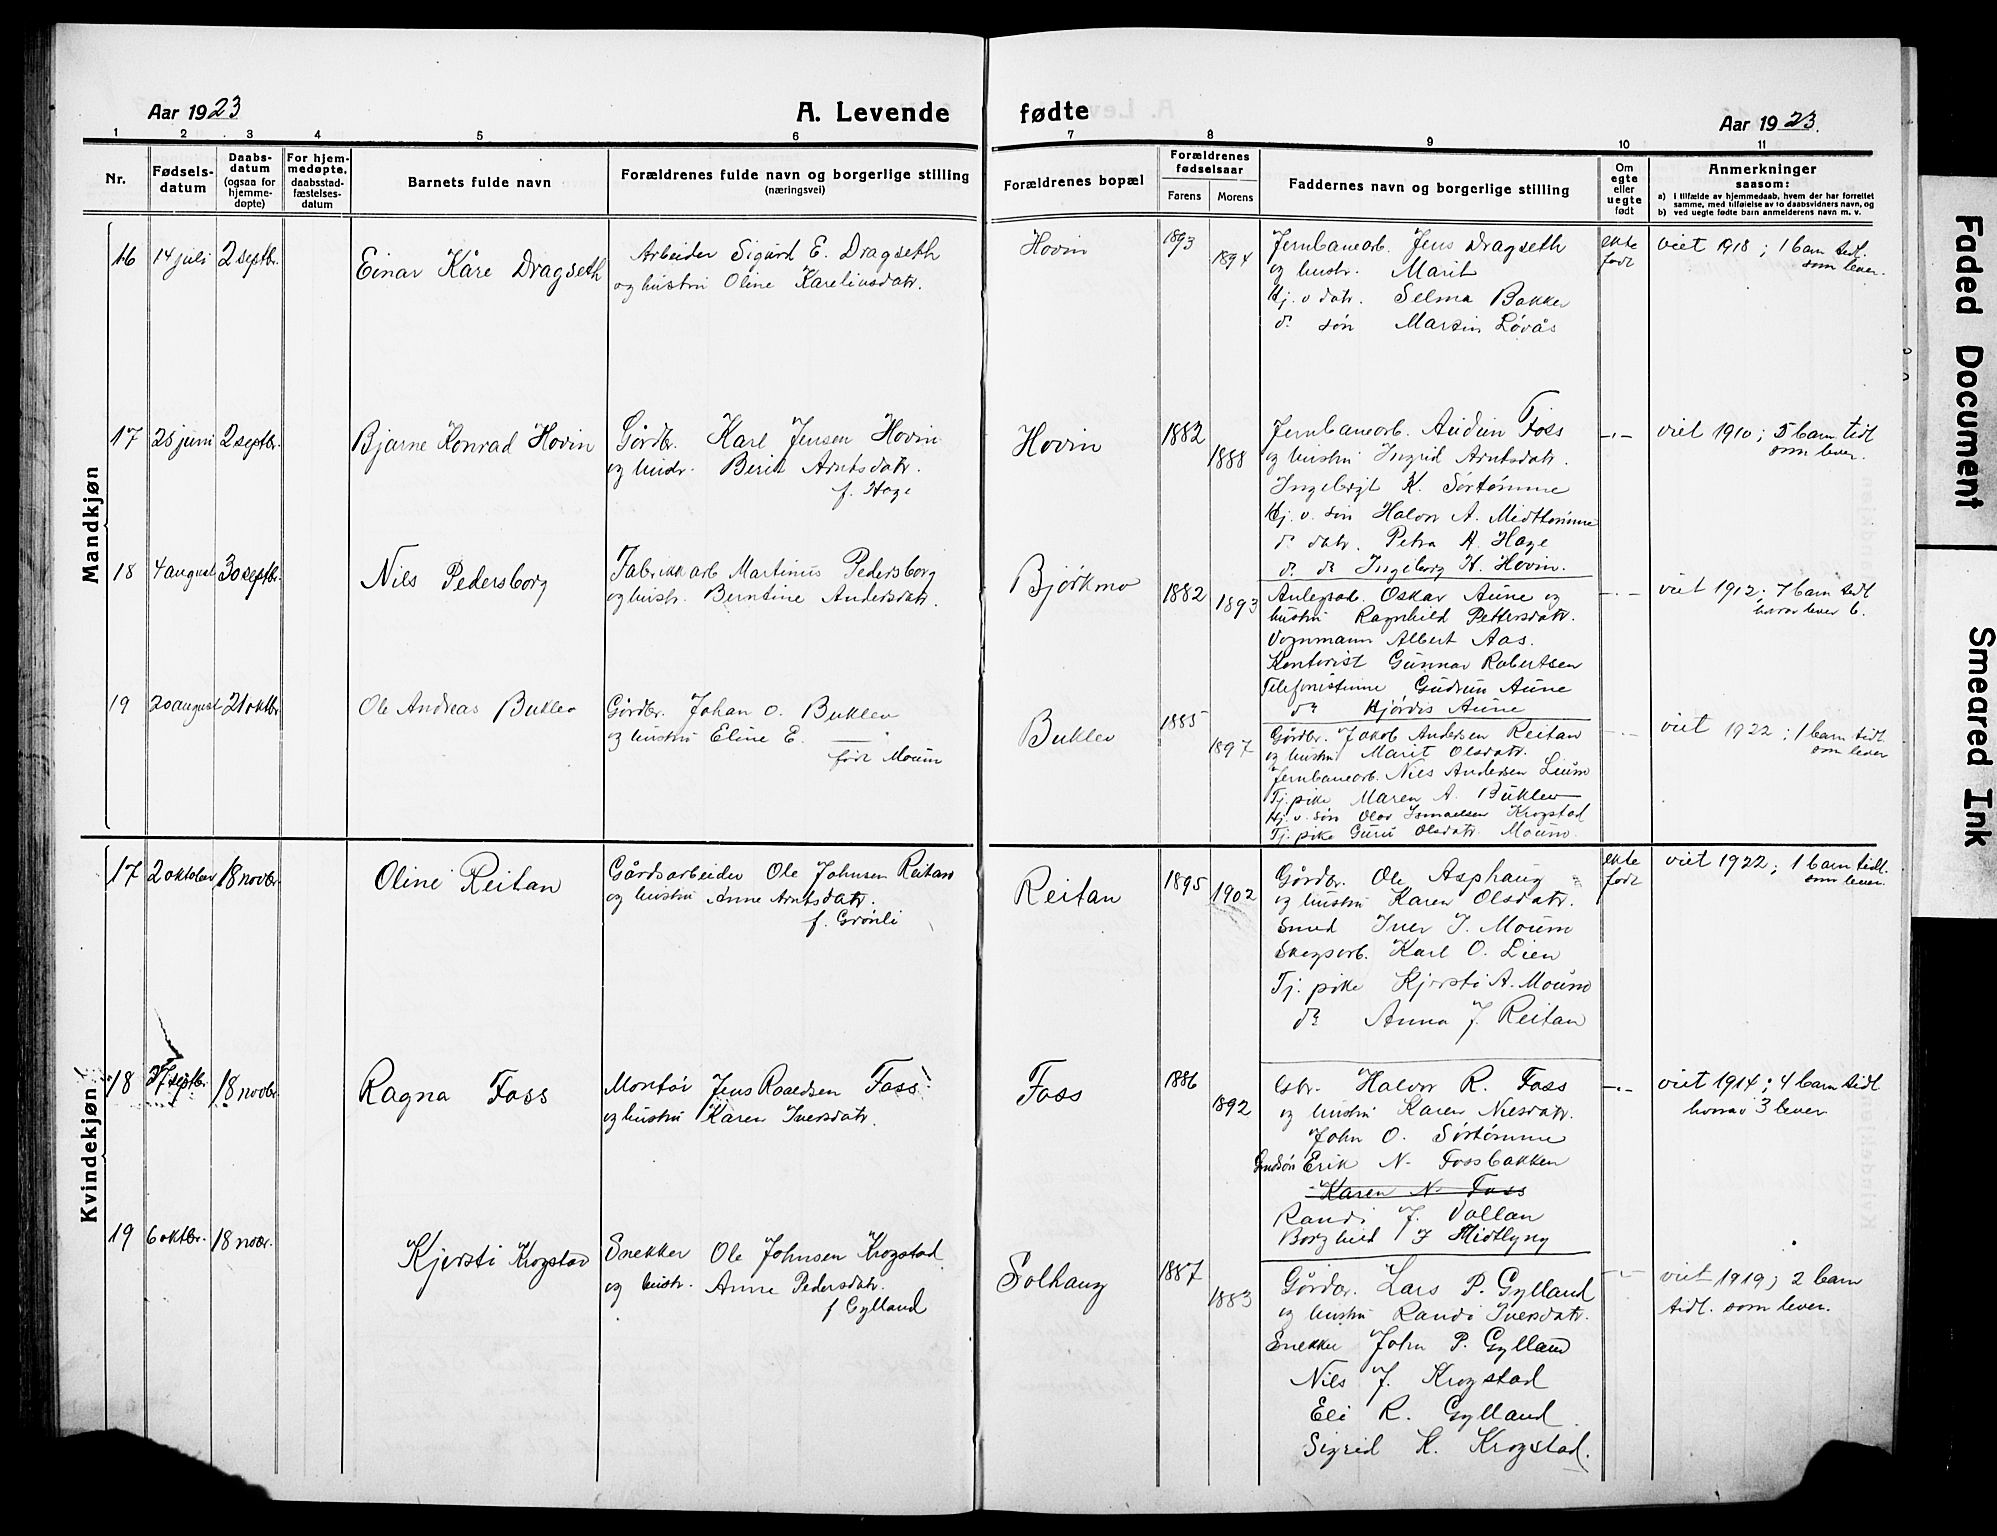 Aar 1923
A. Levende
fødte
Aar 1923.
1 2 3 4 5 6 7 8 9 10 11
Nr.
Fødsels-
datum
Daabs-
datum
(ogsaa for
hjemme-
døpte)
For hjem-
medøpte,
daabsstad-
fæstelses-
datum
Barnets fulde navn
Forældrenes fulde navn og borgerlige stilling
(næringsvei)
Forældrenes bopæl
Forældrenes
fødselsaar
Farens
Morens
Faddernes navn og borgerlige stilling
Om
egte
eller
uegte
født
Anmerkninger
saasom:
a) I tilfælde av hjemmedaab, hvem der har forrettet
samme, med tilføielse av to daabsvidners navn, og
b) ved uegte fødte barn anmelderens navn m. v.
Mandkjøn
16
14 juli
2 septbr.
Einar Kåre Dragseth
Arbeider Sigurd E. Dragseth
og hustru Oline Kareliusdatr.
Hovin
1893
1894
Jernbanearb. Jens Dragseth
og hustr. Marit
Hj. v datr. Selma Bakker
do søn Martin Løvås
ekte
født
viet 1918; 1 barn tidl.
som lever.
17
28 juni
2 septbr.
Bjarne Konrad Hovin
Gårdbr. Karl Jensen Hovin
og hustr. Berit Arntsdatr.
f. Hage
Hovin
1882
1888
Jernbanearb. Audun Foss
og hustru Ingrid Arntsdatr.
Ingebrigt K. Sørtømme
Hj. v. søn Halvor A. Midttømme
do datr. Petra A. Hage
do do Ingeborg H. Hovin.
-"-
viet 1910; 5 barn tidl
som lever.
18
4 august
30 septbr.
Nils Pedersborg
Fabrikkarb Martinus Pedersborg
og hustr. Berntine Andersdatr.
Bjørkmo
1882
1893
Anlegsarb. Oskar Aune og
hustru Ragnhild Pettersdatr.
Vognmann Albert Aas.
Kontorist Gunnar Robertsen
Telefonistinne Gudrun Aune
do Hjørdis Aune
-"-
viet 1912; 7 barn tidl
horav lever 6.
19
20 august
21 oktbr
Ole Andreas Buklev
Gårdbr. Johan O. Buklev
og hustru Eline E. —"—
født Moum
Buklev
1885
1897
Gårdbr. Jakob Andersen Reitan
og hustru Marit Olsdatr.
Jernbanearb. Nils Andersen Lium
Tj. pike Maren A. Buklev
Hj. v. søn Olav Ismaelsen Krogstad
Tj. pike Guru Olsdatr. Moum.
-"-
viet 1922; 1 barn tidl.
som lever
Kvindekjøn.
17
2 oktober
18 novbr.
Oline Reitan
Gårdsarbeider Ole Johnsen Reitan
og hustru Anne Arntsdatr.
f. Grønli
Reitan
1895
1902
Gårdbr. Ole Asphaug
og hustru Karen Olsdatr.
Smed Iver J. Moum
Skogsarb. Karl O. Lien
Tj. pike Kjersti A. Moum
do Anna J. Reitan
ekte
født
viet 1922; 1 barn tidl.
som lever.
18
27 septbr.
18 novbr
Ragna Foss
Montør Jens Roaldsen Foss.
og hustru Karen Iversdatr.
Foss
1886
1892
Gbr. Halvor R. Foss
og hustru Karen Nilsdatr.
John O. Sørtømme
Grdsøn Erik N. Fossbakken
Karen N. Foss
Randi J. Vollan
Borghild J Midtlyng
-"-
viet 1914; 4 barn tidl
horav 3 lever
19
6 oktbr.
18 novbr.
Kjersti Krogstad
Snekker Ole Johnsen Krogstad
og hustr. Anne Pedersdatr.
f Gylland
Solhaug
1887
1883
Gårdbr. Lars P. Gylland
og hustru Randi Iversdatr.
Snekker John P. Gylland
Nils J. Krogstad
Eli R. Gylland
Sigrid K. Krogstad.
-"-
viet 1919; 2 barn
tidl. som lever.
Faded Document
Smeared Ink